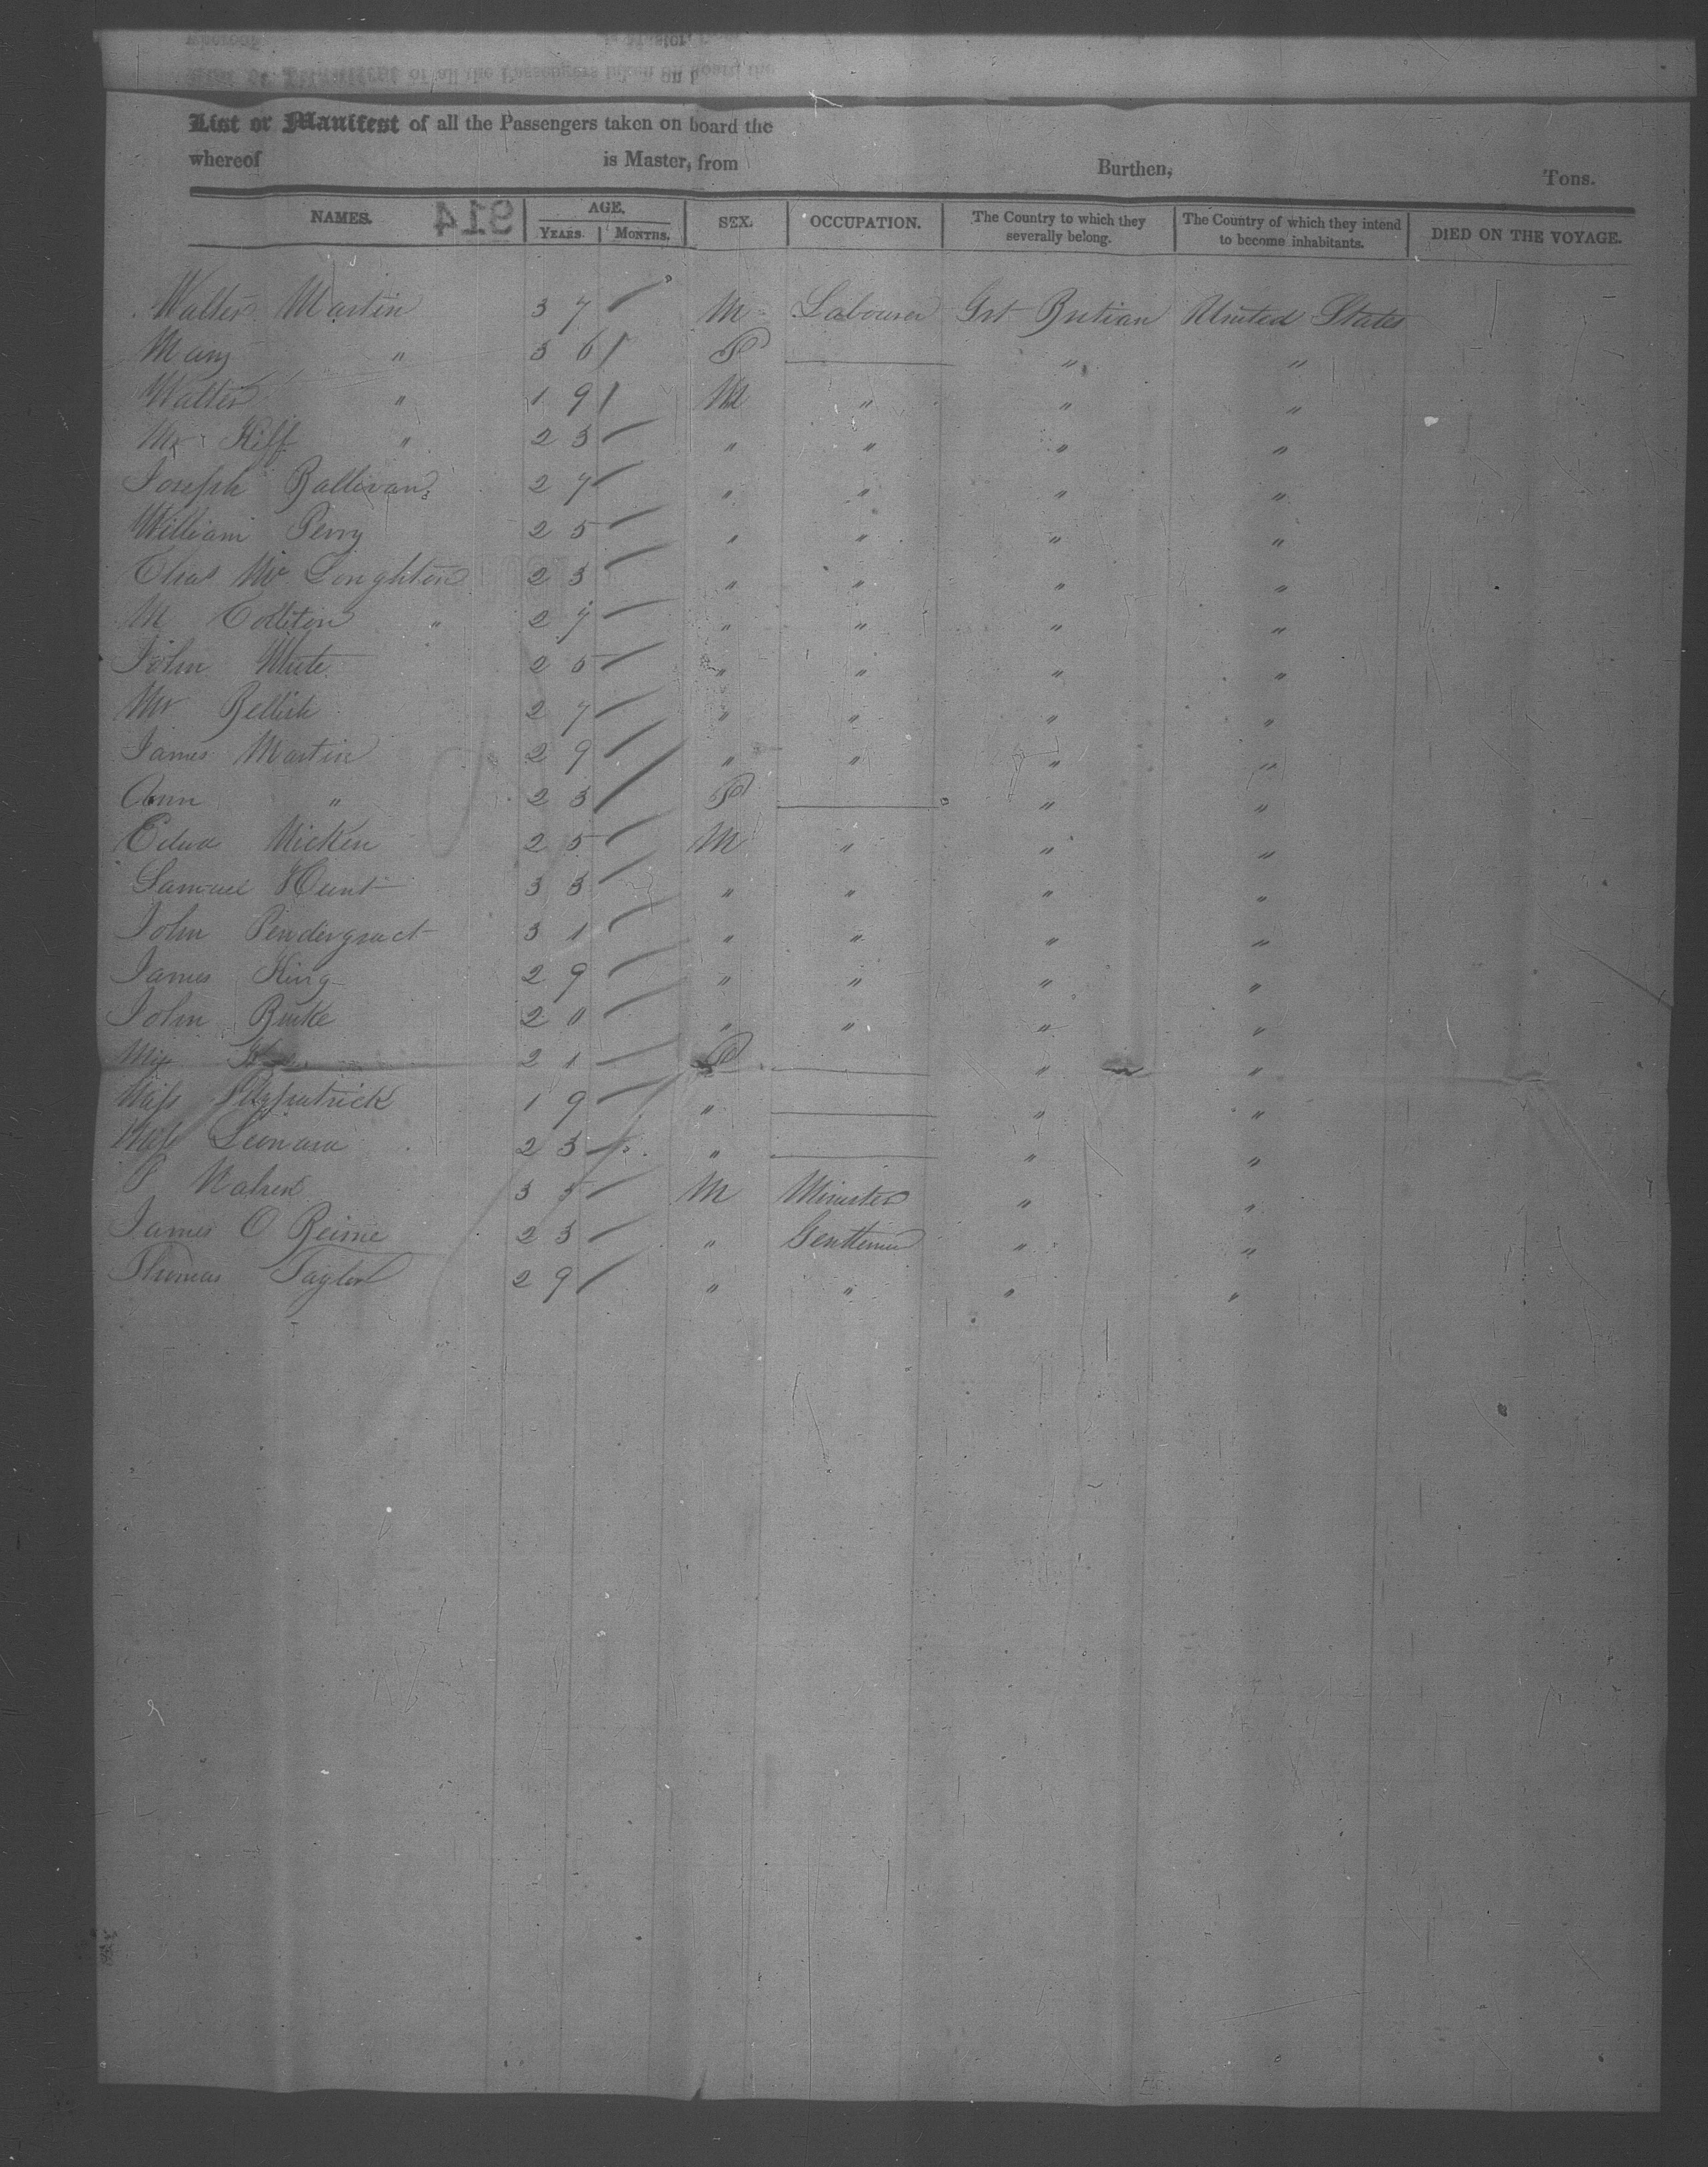 List or Manifest of all the Passengers taken on board the
whereof is Master, from Burthen, Tons.
NAMES. AGE. SEX. OCCUPATION. The Country to which they severally belong. The Country of which they intend to become inhabitants. DIED ON THE VOYAGE.
YEARS. MONTHS.
914
Walter Martin 37 M Labourer Grt Britian United States
Mary " 36 F " "
Walter " 19 M " " "
Mr Kiff " 23 " " " "
Joseph Ballivan 27 " " " "
William Perry 25 " " " "
Chas Mc Loughton 23 " " " "
M Colliton " 27 " " " "
John White 25 " " " "
Mr Bellish 27 " " " "
James Martin 29 " " " "
Ann " 23 F " "
Edwd Micken 25 M " " "
Samuel Hunt 33 " " " "
John Pendergract 31 " " " "
James King 29 " " " "
John Burke 20 " " " "
Miss 21 F " "
Miss Fitzpatrick 19 " " "
Miss Leonard 23 " " "
35 M Minister " "
James O Beirne 23 " " "
Thomas Taylor 29 " " " "